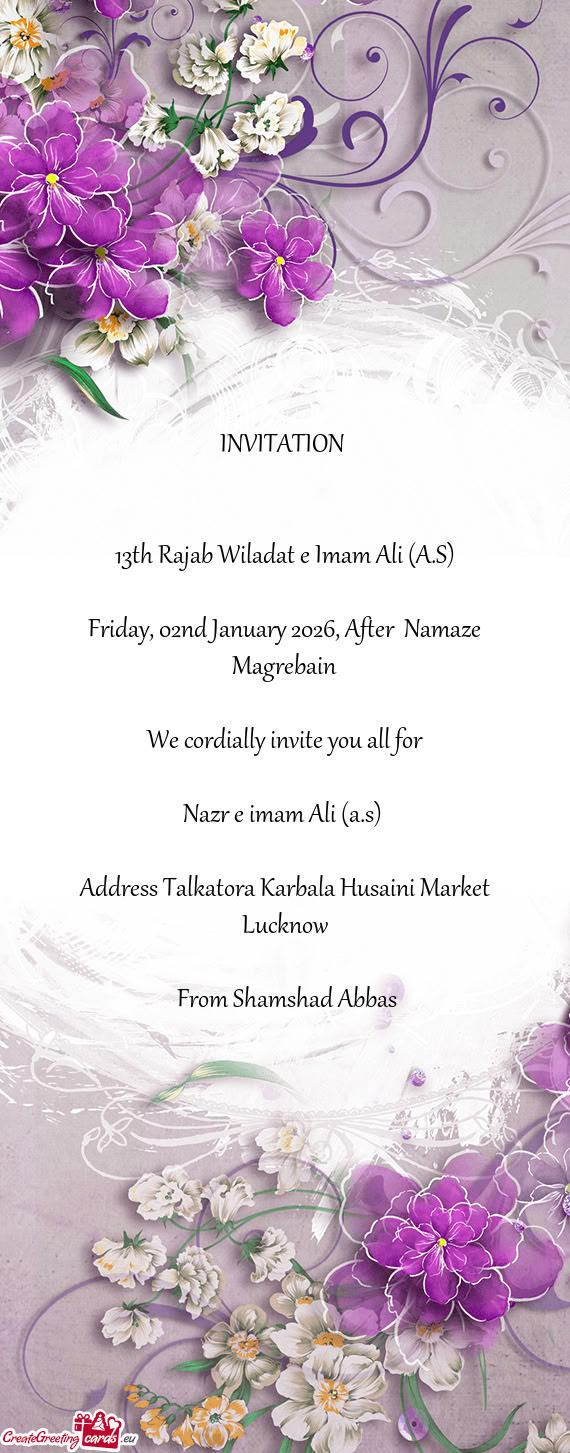 INVITATION
13th Rajab Wiladat e Imam Ali (A.S)
Friday, 02nd January 2026, After  Namaze
Magrebain
We cordially invite you all for
Nazr e imam Ali (a.s)
Address Talkatora Karbala Husaini Market
Lucknow
From Shamshad Abbas
CreateGreeting cards .eu